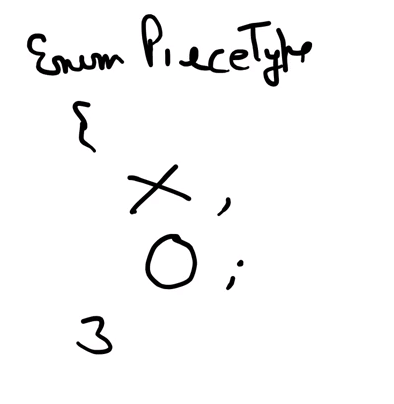 Enum PieceType
{
X ,
O ;
}